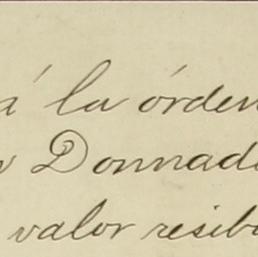 á la órden
Donnad
valor resib